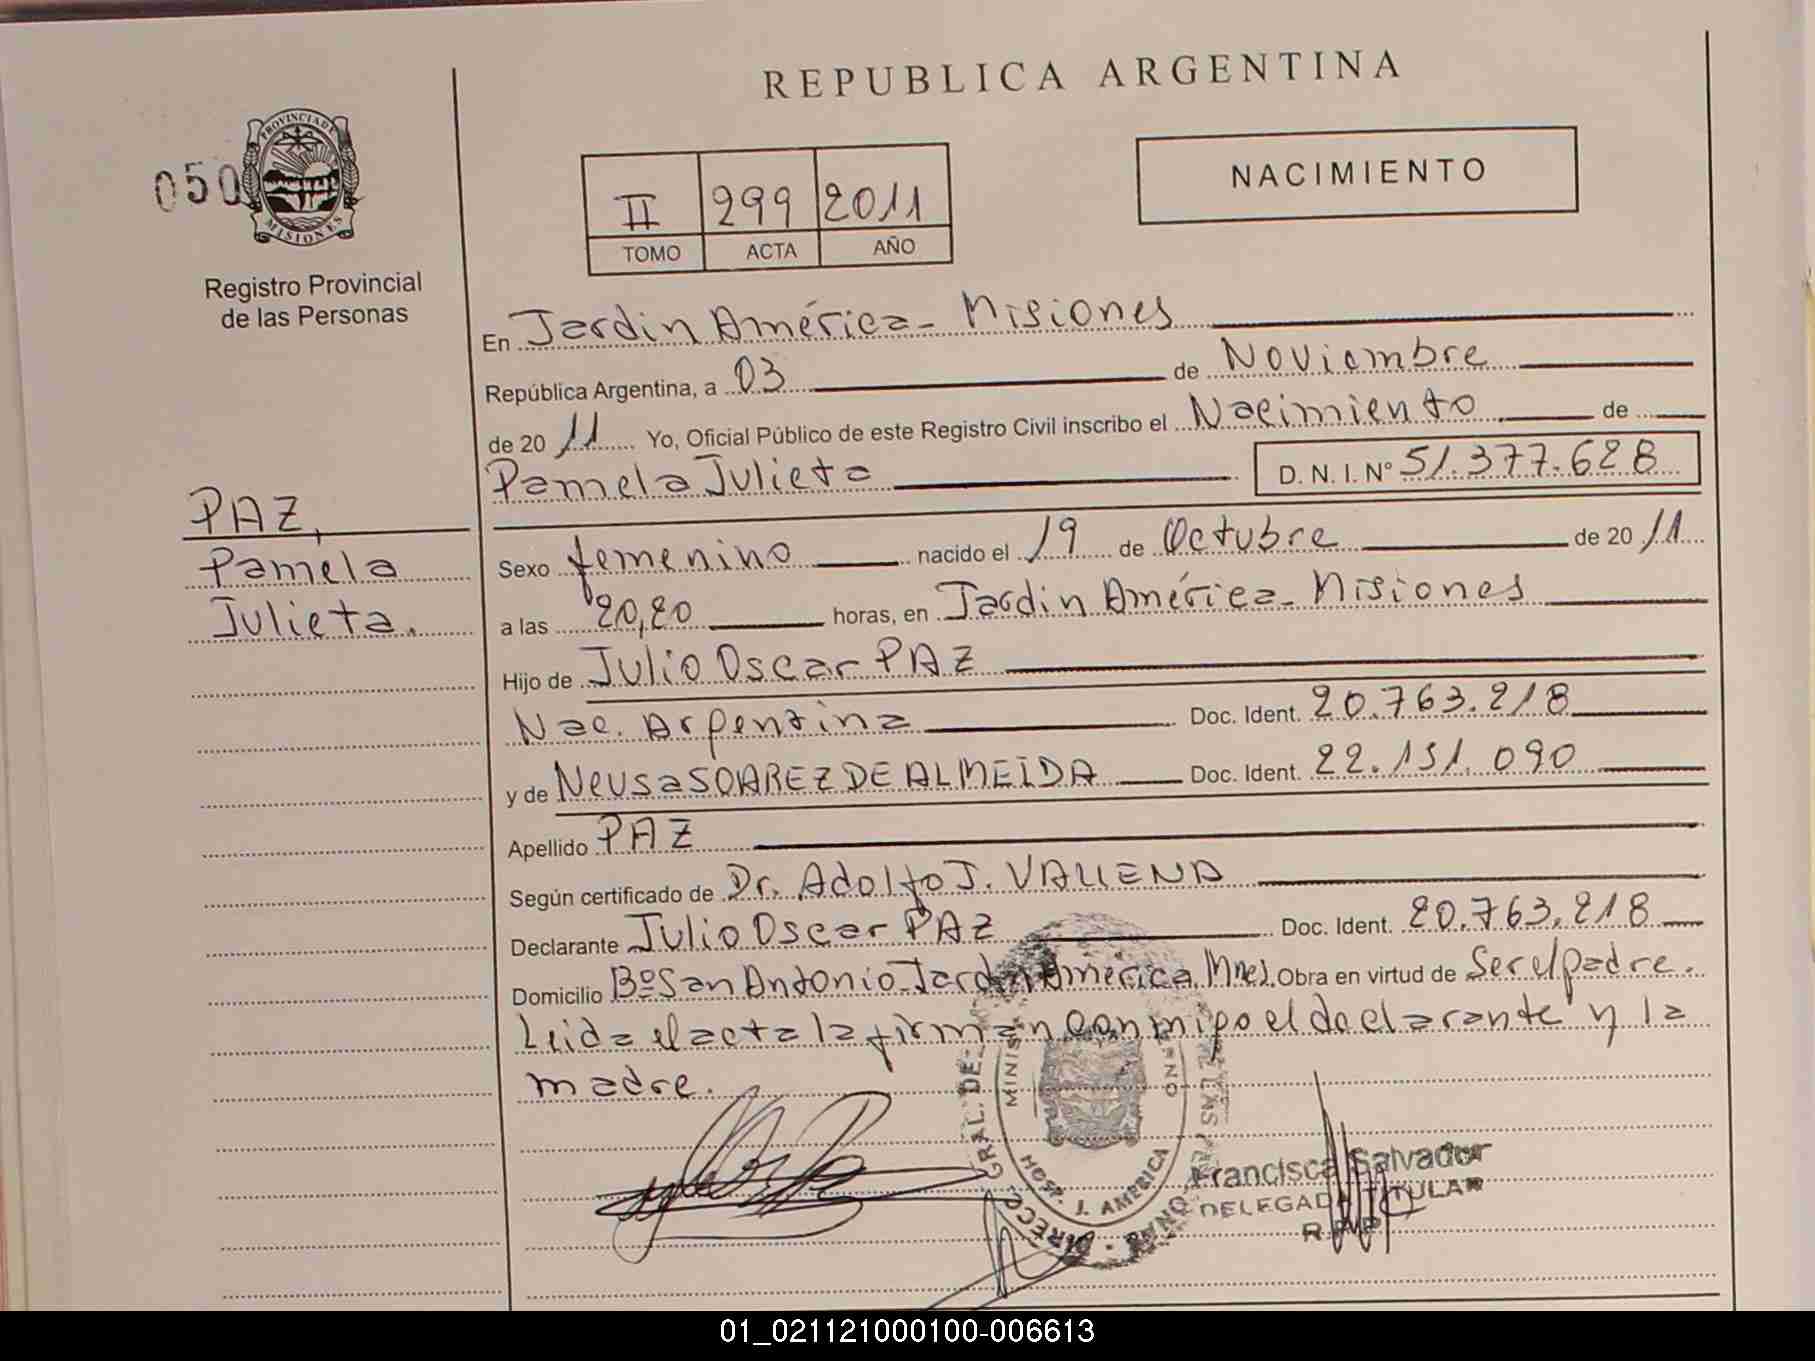 REPUBLICA ARGENTINA
050
PROVINCIA DE
MISIONES
Registro Provincial
de las Personas
II 299 2011
TOMO ACTA AÑO
NACIMIENTO
En Jardin América - Misiones
República Argentina, a 03 de Noviembre
de 20 11 Yo, Oficial Público de este Registro Civil inscribo el Nacimiento de
Pamela Julieta D. N. I. Nº 51.377.628
PAZ,
Pamela
Julieta.
Sexo femenino nacido el 19 de Octubre de 20 11
a las 20,20 horas, en Jardin América - Misiones
Hijo de Julio Oscar PAZ
Nac. Argentina Doc. Ident. 20.763.218
y de Neusa SOAREZ DE ALMEIDA Doc. Ident. 22.151.090
Apellido PAZ
Según certificado de Dr. Adolfo J.
Declarante Julio Oscar PAZ Doc. Ident. 20.763.218
Domicilio Bº San Antonio - Jardin América, Mnes. Obra en virtud de Ser el padre.
Leida el acta la firman conmigo el declarante y la
madre.
DIRECC. GRAL. DE
HOSP. J. AMERICA
Francisca Salvador
DELEGADA TITULAR
R.P.P.
01_021121000100-006613